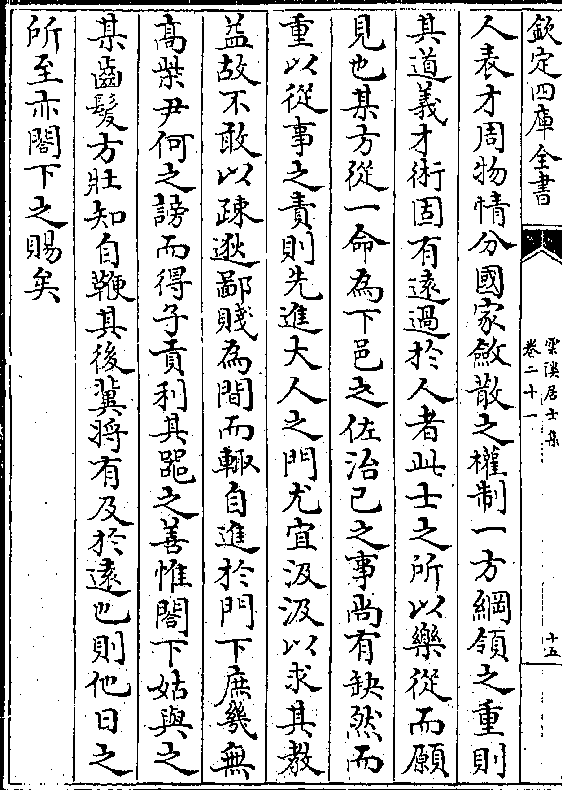 欽定四庫全書
雲溪居士集
卷二十一
十五
人表才周物情分國家斂散之權制一方綱領之重則
其道義才術固有遠過於人者此士之所以樂從而願
見也某方從一命為下邑之佐治已之事尚有缺然而
重以從事之責則先進大人之門尤宜汲汲以求其教
益故不敢以疎逖鄙賤為間而輙自進於門下庶幾無
高柴尹何之謗而得子貢利其器之善惟閣下姑與之
某齒髮方壯知自鞭其後冀將有及於遠也則他日之
所至亦閣下之賜矣